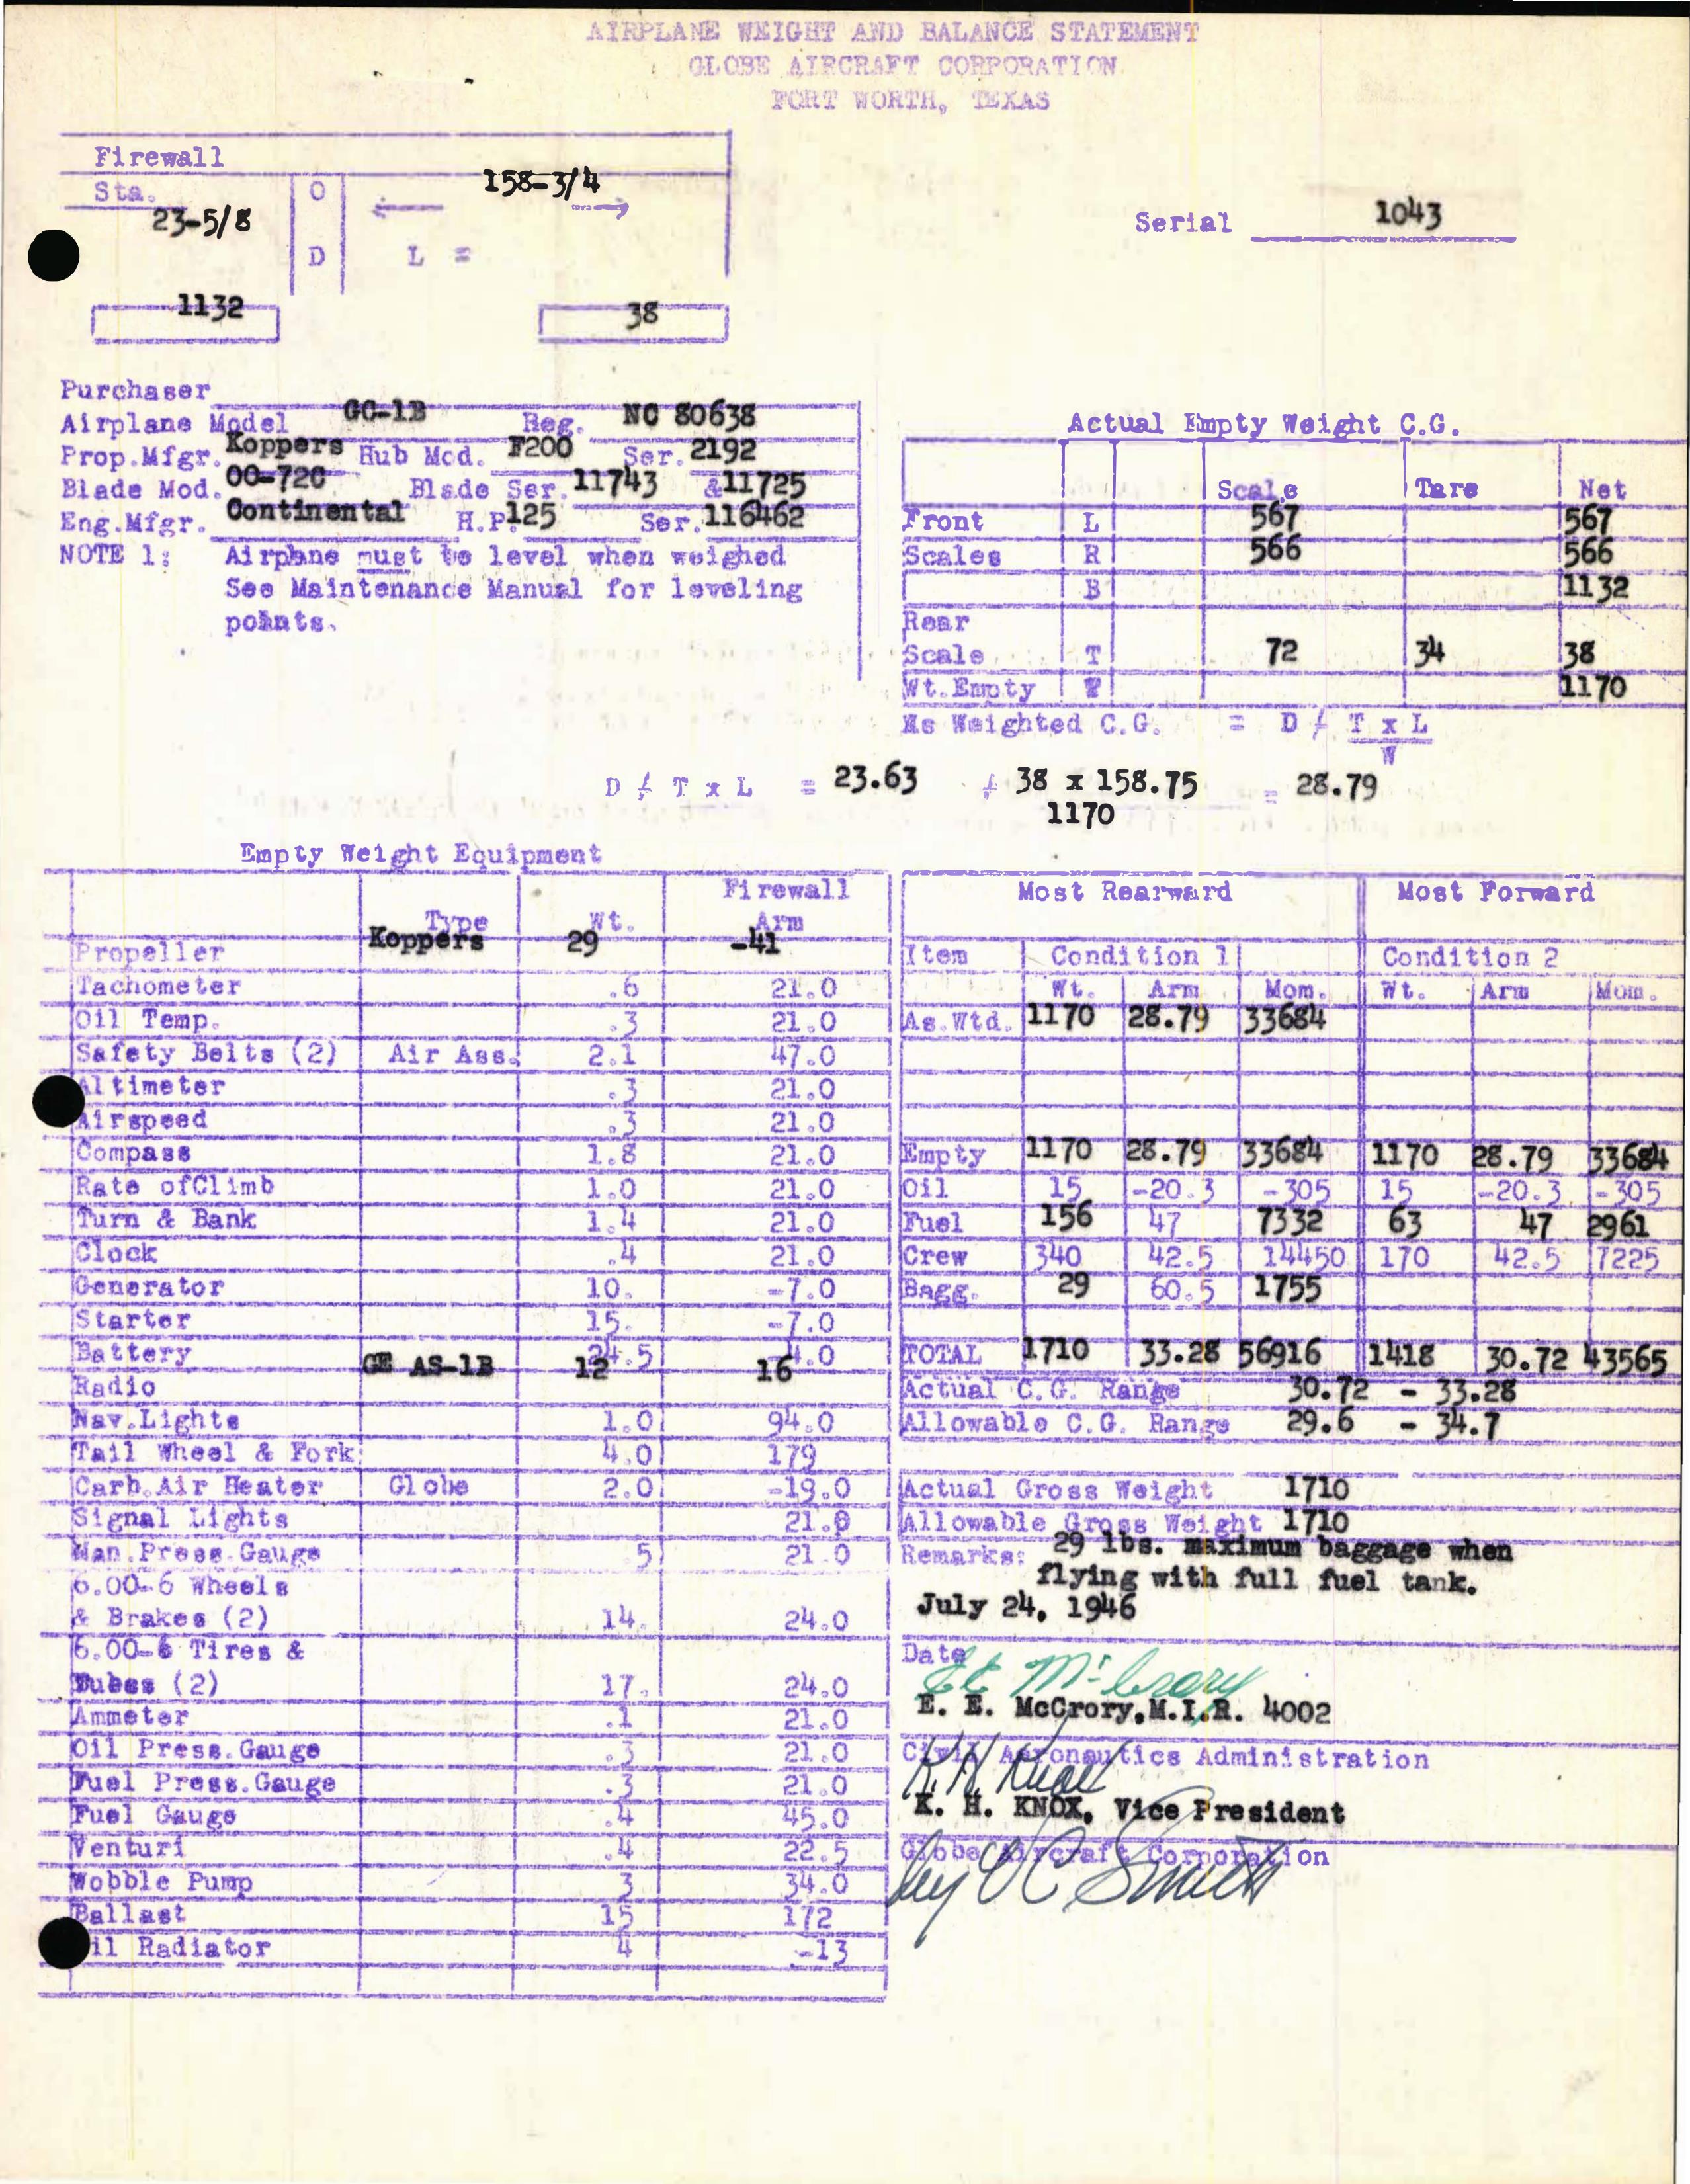 AIRPLANE WEIGHT AND BALANCE STATEMENT
GLOBE AIRCRAFT CORPORATION
FORT WORTH, TEXAS
Firewall
Sta. O 158-3/4
23-5/8
D L =
Serial 1043
1132 38
Purchaser
Airplane Model GC-1B Reg. NC 80638
Prop.Mfgr. Koppers Hub Mod. F200 Ser. 2192
Blade Mod. 00-72C Blade Ser. 11743 &11725
Eng.Mfgr. Continental H.P. 125 Ser. 116462
NOTE 1: Airplane must be level when weighed
See Maintenance Manual for leveling
points.
Actual Empty Weight C.G.
Scale Tare Net
Front L 567 567
Scales R 566 566
B 1132
Rear
Scale T 72 34 38
Wt.Empty W 1170
As Weighted C.G. = D / T x L
W
D / T x L = 23.63 / 38 x 158.75 = 28.79
1170
Empty Weight Equipment
Type Wt. Firewall Arm
Propeller Koppers 29 -41
Tachometer .6 21.0
Oil Temp. .3 21.0
Safety Belts (2) Air Ass. 2.1 47.0
Altimeter .3 21.0
Airspeed .3 21.0
Compass 1.8 21.0
Rate ofClimb 1.0 21.0
Turn & Bank 1.4 21.0
Clock .4 21.0
Generator 10. -7.0
Starter 15. -7.0
Battery 24.5 .0
Radio GE AS-1B 12 16
Nav.Lights 1.0 94.0
Tail Wheel & Fork 4.0 179
Carb.Air Heater Globe 2.0 -19.0
Signal Lights 21.0
Man.Press.Gauge .5 21.0
6.00-6 Wheels
& Brakes (2) 14. 24.0
6.00-6 Tires &
Tubes (2) 17. 24.0
Ammeter .1 21.0
Oil Press.Gauge .3 21.0
Fuel Press.Gauge .3 21.0
Fuel Gauge .4 45.0
Venturi .4 22.5
Wobble Pump 3 34.0
Ballast 15 172
il Radiator 4 -13
Most Rearward Most Forward
Item Condition 1 Condition 2
Wt. Arm Mom. Wt. Arm Mom.
As.Wtd. 1170 28.79 33684
Empty 1170 28.79 33684 1170 28.79 33684
Oil 15 -20.3 -305 15 -20.3 -305
Fuel 156 47 7332 63 47 2961
Crew 340 42.5 14450 170 42.5 7225
Bagg. 29 60.5 1755
TOTAL 1710 33.28 56916 1418 30.72 43565
Actual C.G. Range 30.72 - 33.28
Allowable C.G. Range 29.6 - 34.7
Actual Gross Weight 1710
Allowable Gross Weight 1710
Remarks: 29 lbs. maximum baggage when
flying with full fuel tank.
July 24, 1946
Date
EE McCrory
E. E. McCrory,M.I.R. 4002
Civil Aeronautics Administration
K H Knox
K. H. KNOX, Vice President
Globe Aircraft Corporation
by O C Smith